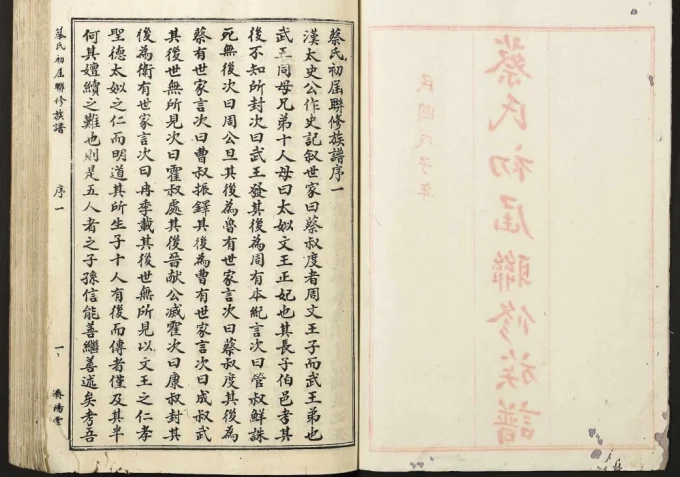 蔡氏初屆聯修族譜
民國戊子年
蔡氏初屆聯修族譜序一
漢太史公作史記叙世家曰蔡叔度者周文王子而武王弟也
武王同母兄弟十人母曰太姒文王正妃也其長子伯邑考其
後不知所封次曰武王發其後為周有本紀言次曰管叔鮮誅
死無後次曰周公旦其後為魯有世家言次曰蔡叔度其後為
蔡有世家言次曰曹叔振鐸其後為曹有世家言次曰成叔武
其後世無所見次曰霍叔處其後晉献公滅霍次曰康叔封其
後為衛有世家言次曰冉季載其後世無所見以文王之仁孝
聖德太姒之仁而明道其所生子十人有後而傳者僅及其半
何其嬗續之難也則是五人者之子孫信能善繼善述矣考吾
蔡氏初屆聯修族譜 序一 一 濟陽堂